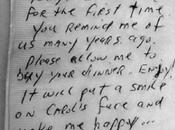 for the first time
you remind me of
us many years ago.
Please allow me to
buy your dinner. Enjoy!
It will put a smile
on Carol's face and
make me happy...